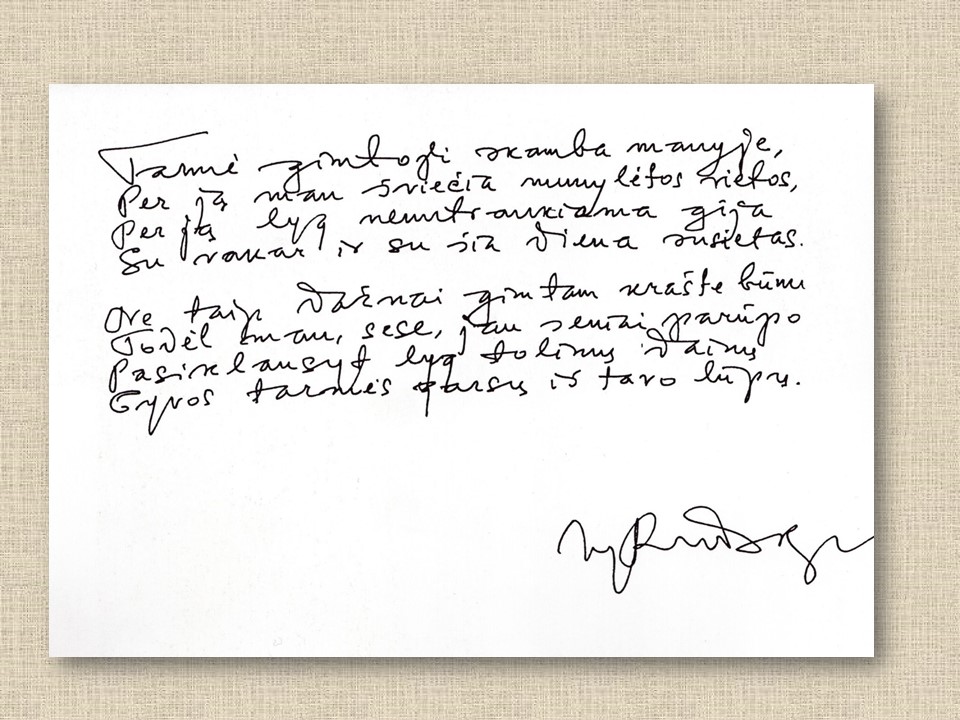 Tarmė gimtoji skamba manyje,
Per ją man šviečia numylėtos vietos,
Per ją lyg nenutraukiama gija
Su vakar ir su šia diena susietas.
Ore taip dažnai gimtam krašte būnu
Todėl man, sese, jau seniai parūpo
Pasiklausyt lyg tolimų dainų
Gyvos tarmės garsų iš tavo lūpų.